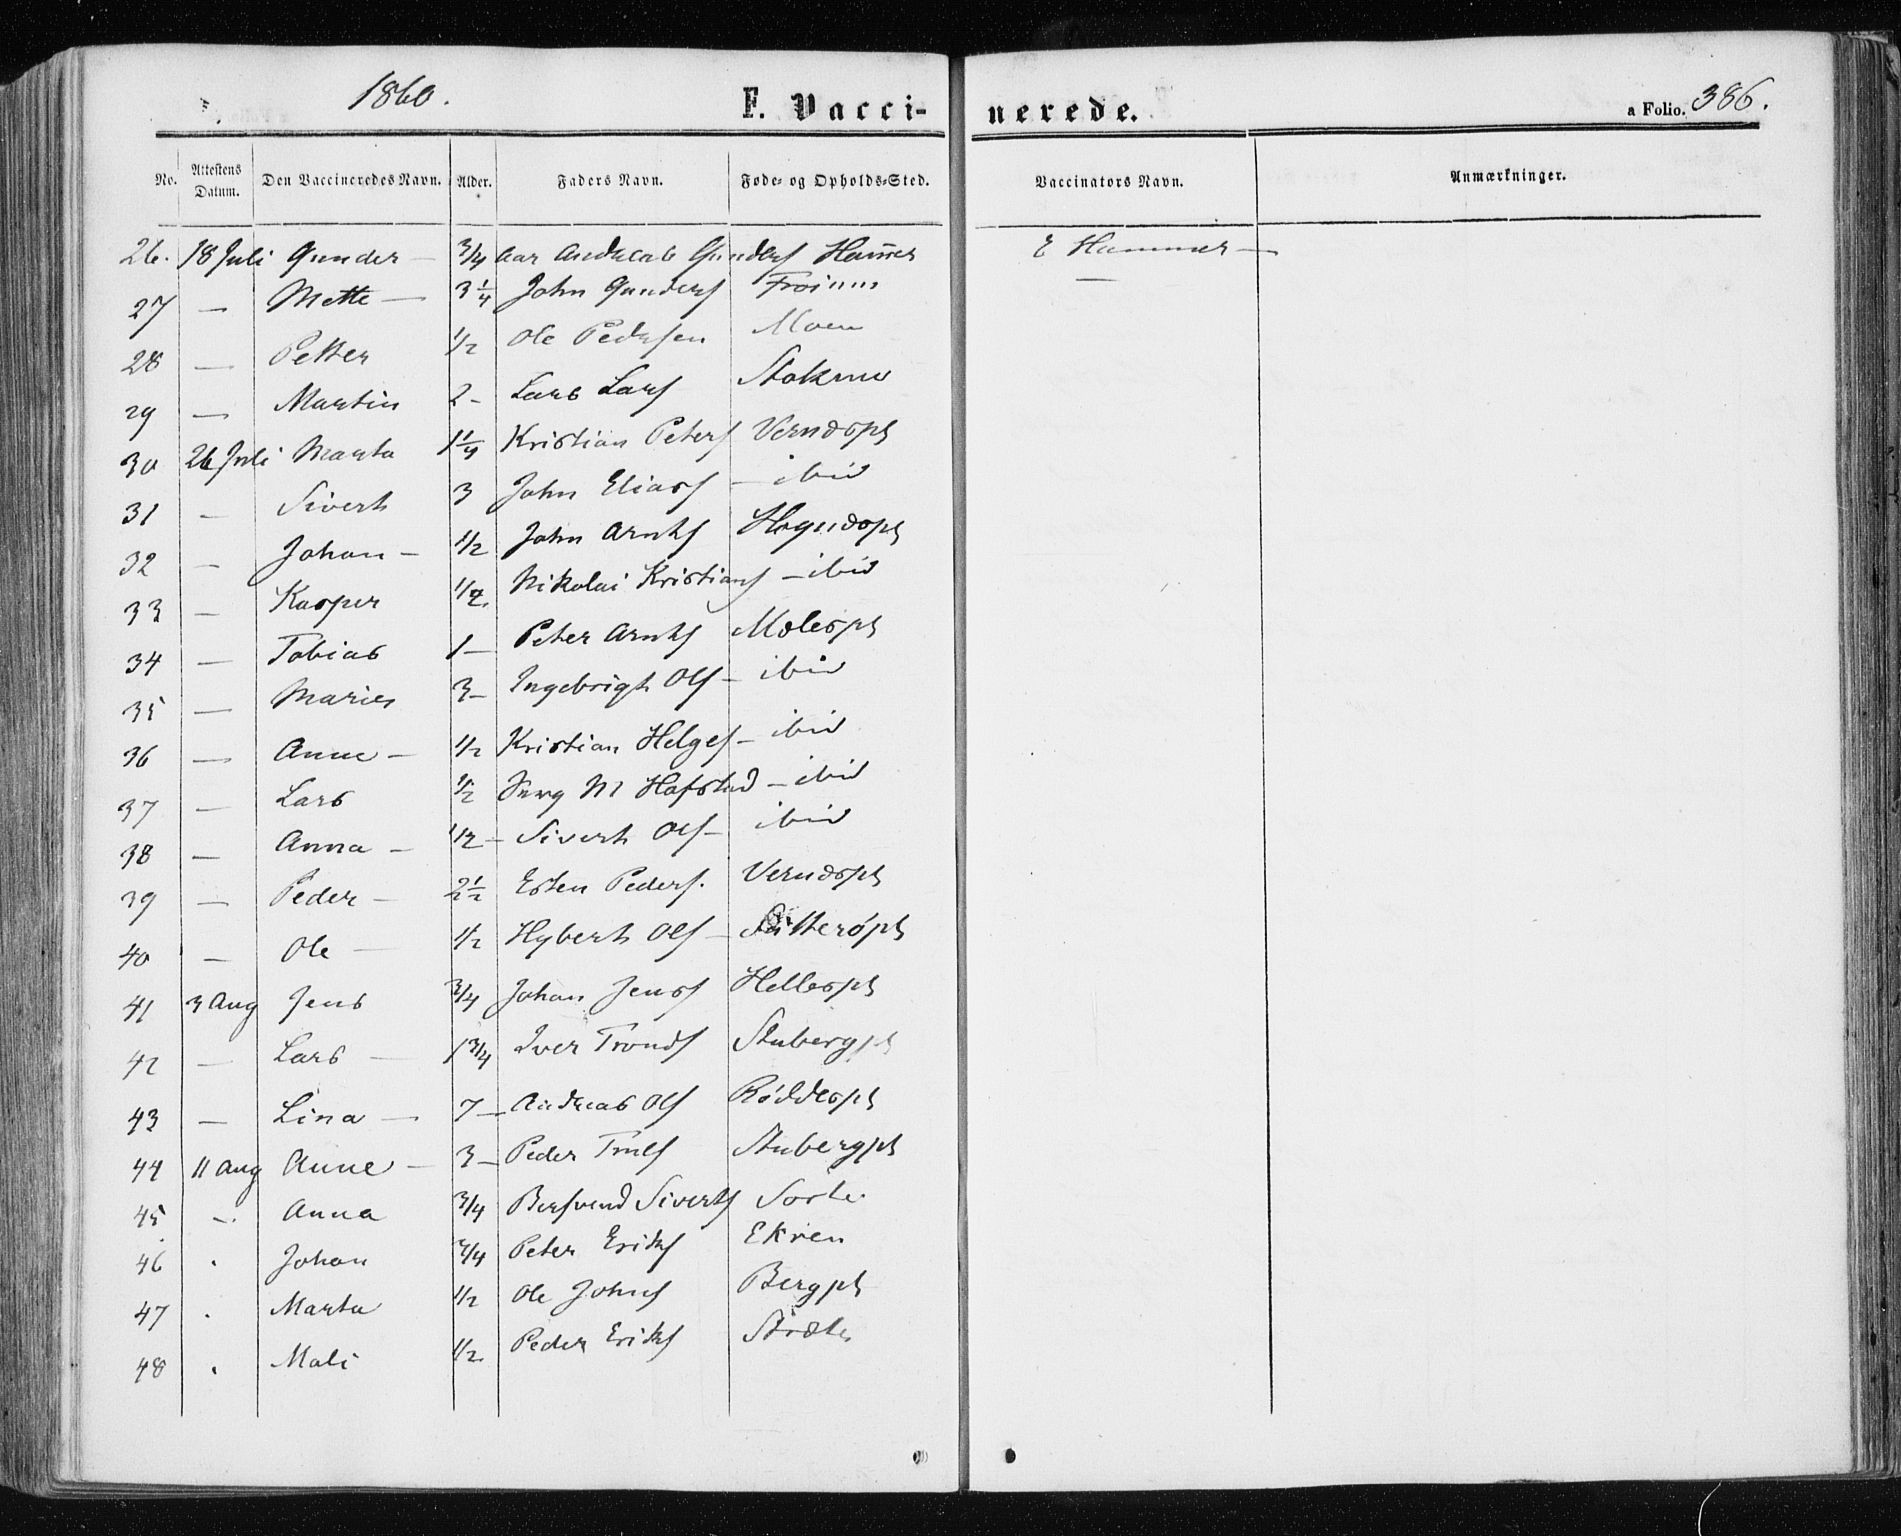 1860.
F. Vacci-
nerede.
a Folio. 386.
No. Attestens Datum. Den Vaccineredes Navn. Alder. Faders Navn. Føde- og Opholds-Sted. Vaccinators Navn. Anmærkninger.
26. 18 Juli Gunder — 3/4 aar Andreas Gunders Ham̄er E Hammer —
27 — Mette — 3 1/4 John Gunders Froinn —
28 — Petter 1/2 Ole Pedersen Moen
29 — Martin 2 - Lars Lars
30 26 Juli Marta 1 1/4 Kristian Peters Verndspl
31 — Sivert 3 John Elias — ibid
32 — Johan — 1/2 John Arnts Hogndspl
33 — Kasper 1/2 Nikolai Kristians — ibid
34 — Tobias 1 — Peter Arnts Mælespl
35 — Maries 3 — Ingebrigt Ols — ibid
36 — Anne — 1/2 Kristian Helges — ibid
37 — Lars 1/2 M Hofstad — ibid
38 — Anna — 1/2 — Sivert Ols — ibid
39 — Peder — 2 1/2 Esten Peders. Verndspl
40 — Ole — 1/2 Hybert Ols —
41 3 Aug Jens 3/4 Johan Jens Hellespl
42 — Lars — 1 3/4 Iver Tronds Stubergpl
43 — Lina — 7 — Andreas Ols Røddespl
44 11 Aug Anne — 3 — Peder Truls Stubergpl
45 -. Anna 3/4 Bersvend Siverts Sorte
46 . Johan 3/4 Peter Eriks Ekren
47 . Marta 1/2 Ole Johns Bergpl
48 . Mali 1/2 Peder Eriks Stræte